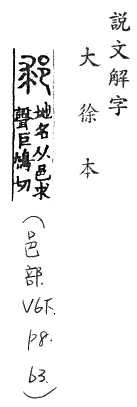 說文解字
大徐本
地名从邑求
聲巨鳩切
(邑部.V6下.p8.63.)